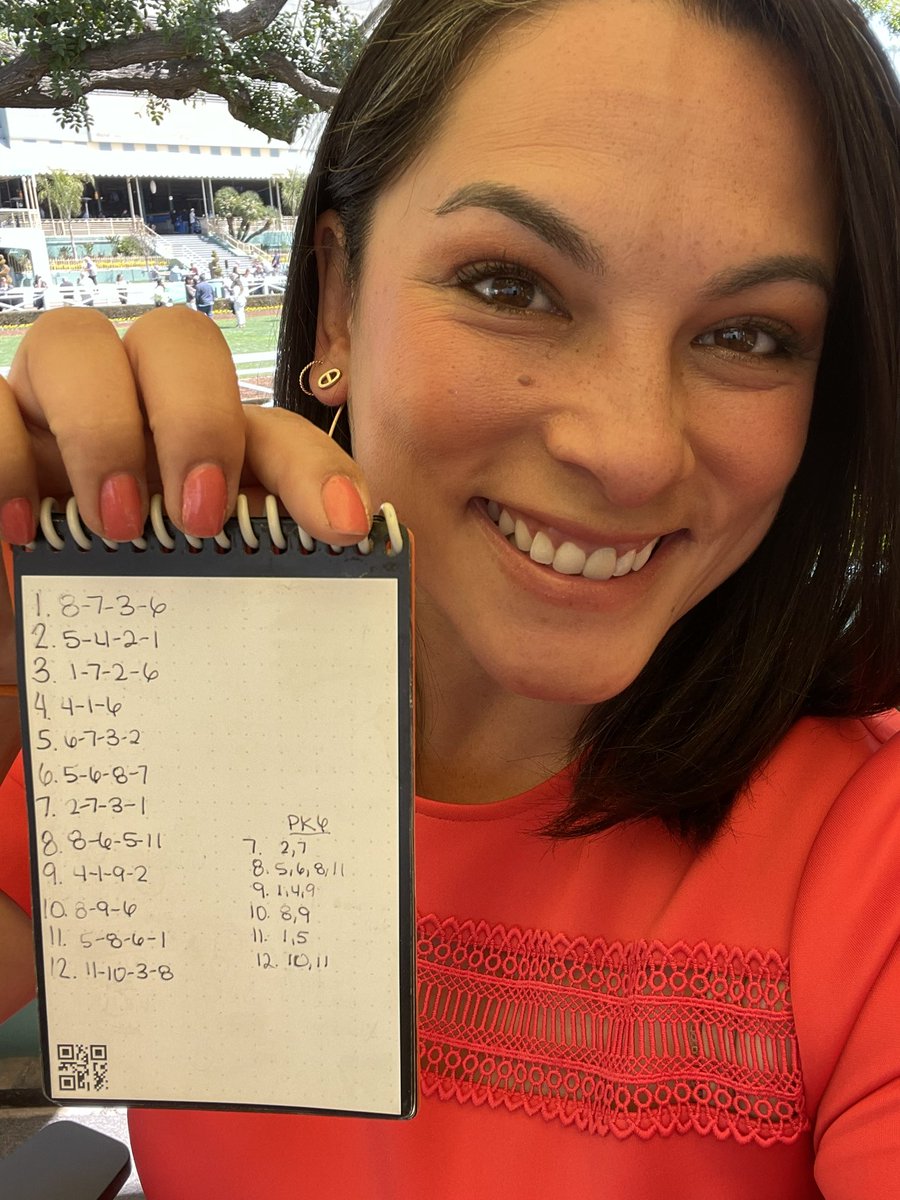 1. 8-7-3-6
2. 5-4-2-1
3. 1-7-2-6
4. 4-1-6
5. 6-7-3-2
6. 5-6-8-7
7. 2-7-3-1
8. 8-6-5-11
9. 4-1-9-2
10. 8-9-6
11. 5-8-6-1
12. 11-10-3-8
PK6
7. 2,7
8. 5,6,8,11
9. 1,4,9
10. 8,9
11. 1,5
12. 10,11